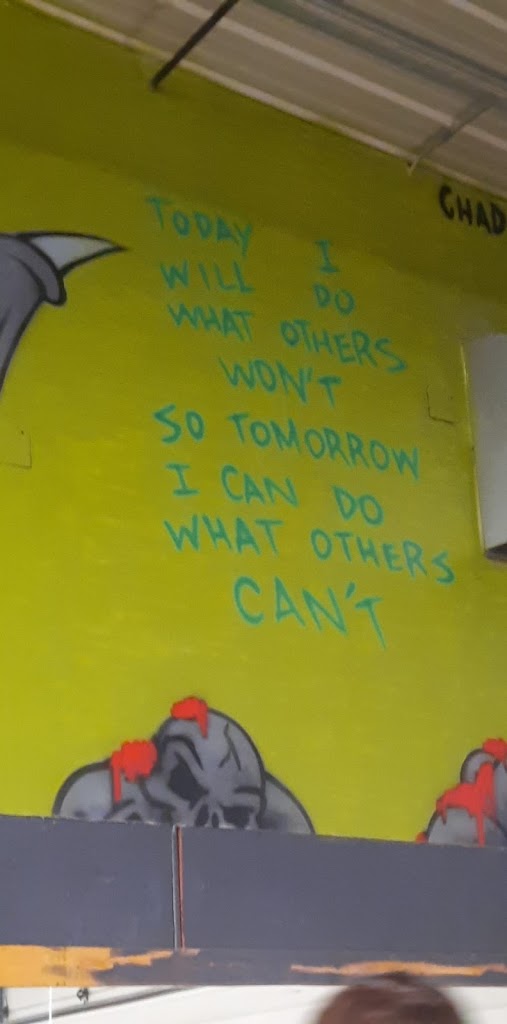 CHAD
TODAY I
WILL DO
WHAT OTHERS
WON'T
SO TOMORROW
I CAN DO
WHAT OTHERS
CAN'T